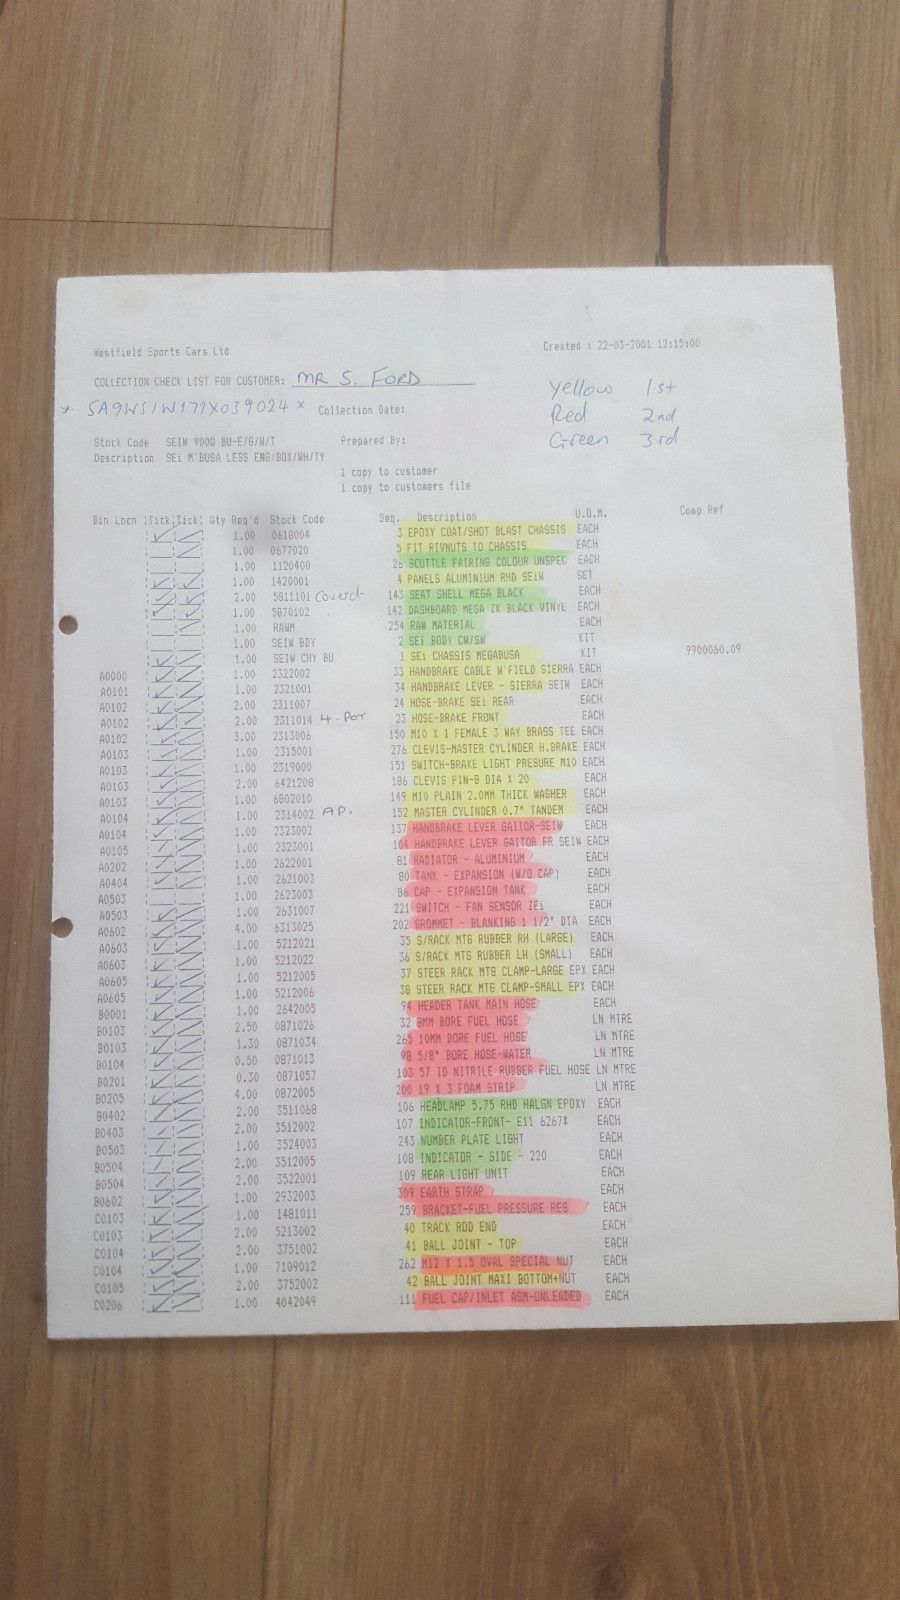 Westfield Sports Cars Ltd Created : 22-03-2001 12:15:00
COLLECTION CHECK LIST FOR CUSTOMER: MR S. FORD Yellow 1st
* SA9WS1W171X039024 * Collection Date: Red 2nd
Green 3rd
Stock Code SEIW 900Q BU-E/G/W/T Prepared By:
Description SEi M'BUSA LESS ENG/BOX/WH/TY
1 copy to customer
1 copy to customers file
Bin Locn |Tick|Tick| Qty Req'd Stock Code Seq. Description U.O.M. Comp Ref
1.00 0618004 3 EPOXY COAT/SHOT BLAST CHASSIS EACH
1.00 0677020 5 FIT RIVNUTS TO CHASSIS EACH
1.00 1120400 26 SCUTTLE FAIRING COLOUR UNSPEC EACH
1.00 1420001 4 PANELS ALUMINIUM RHD SEiW SET
2.00 5811101 143 SEAT SHELL MEGA BLACK EACH
1.00 5870102 142 DASHBOARD MEGA ZK BLACK VINYL EACH
1.00 RAWM 254 RAW MATERIAL EACH
1.00 SEIW BDY 2 SEi BODY CW/SW KIT
1.00 SEIW CHY BU 1 SEi CHASSIS MEGABUSA KIT 9900060.09
A0000 1.00 2322002 33 HANDBRAKE CABLE W'FIELD SIERRA EACH
A0101 1.00 2321001 34 HANDBRAKE LEVER - SIERRA SEIW EACH
A0102 2.00 2311007 24 HOSE-BRAKE SEi REAR EACH
A0102 2.00 2311014 4. Pot 23 HOSE-BRAKE FRONT EACH
A0102 3.00 2313006 150 M10 X 1 FEMALE 3 WAY BRASS TEE EACH
A0103 1.00 2315001 276 CLEVIS-MASTER CYLINDER H.BRAKE EACH
A0103 1.00 2319000 151 SWITCH-BRAKE LIGHT PRESURE M10 EACH
A0103 2.00 6421208 186 CLEVIS PIN-8 DIA X 20 EACH
A0103 1.00 6802010 149 M10 PLAIN 2.0MM THICK WASHER EACH
A0104 1.00 2314002 AP. 152 MASTER CYLINDER 0.7" TANDEM EACH
A0104 1.00 2323002 137 HANDBRAKE LEVER GAITOR-SEIW EACH
A0105 1.00 2323001 104 HANDBRAKE LEVER GAITOR FR SEIW EACH
A0202 1.00 2622001 81 RADIATOR - ALUMINIUM EACH
A0404 1.00 2621003 80 TANK - EXPANSION (W/O CAP) EACH
A0503 1.00 2623003 86 CAP - EXPANSION TANK EACH
A0503 1.00 2631007 221 SWITCH - FAN SENSOR ZEi EACH
A0602 4.00 6313025 202 GROMMET - BLANKING 1 1/2" DIA EACH
A0603 1.00 5212021 35 S/RACK MTG RUBBER RH (LARGE) EACH
A0603 1.00 5212022 36 S/RACK MTG RUBBER LH (SMALL) EACH
A0605 1.00 5212005 37 STEER RACK MTG CLAMP-LARGE EPX EACH
A0605 1.00 5212006 38 STEER RACK MTG CLAMP-SMALL EPX EACH
B0001 1.00 2642005 94 HEADER TANK MAIN HOSE EACH
B0103 2.50 0871026 32 8MM BORE FUEL HOSE LN MTRE
B0103 1.30 0871034 265 10MM BORE FUEL HOSE LN MTRE
B0104 0.50 0871013 98 5/8" BORE HOSE-WATER LN MTRE
B0201 0.30 0871057 103 57 ID NITRILE RUBBER FUEL HOSE LN MTRE
B0205 4.00 0872005 200 19 X 3 FOAM STRIP LN MTRE
B0402 2.00 3511068 106 HEADLAMP 5.75 RHD HALGN EPOXY EACH
B0403 2.00 3512002 107 INDICATOR-FRONT- E11 6267# EACH
B0503 1.00 3524003 243 NUMBER PLATE LIGHT EACH
B0504 2.00 3512005 108 INDICATOR - SIDE - 220 EACH
B0504 2.00 3522001 109 REAR LIGHT UNIT EACH
B0602 1.00 2932003 309 EARTH STRAP EACH
C0103 1.00 1481011 259 BRACKET-FUEL PRESSURE REG EACH
C0103 2.00 5213002 40 TRACK ROD END EACH
C0104 2.00 3751002 41 BALL JOINT - TOP EACH
C0104 1.00 7109012 262 M12 X 1.5 OVAL SPECIAL NUT EACH
C0105 2.00 3752002 42 BALL JOINT MAXI BOTTOM+NUT EACH
C0206 1.00 4042049 111 FUEL CAP/INLET ASM-UNLEADED EACH